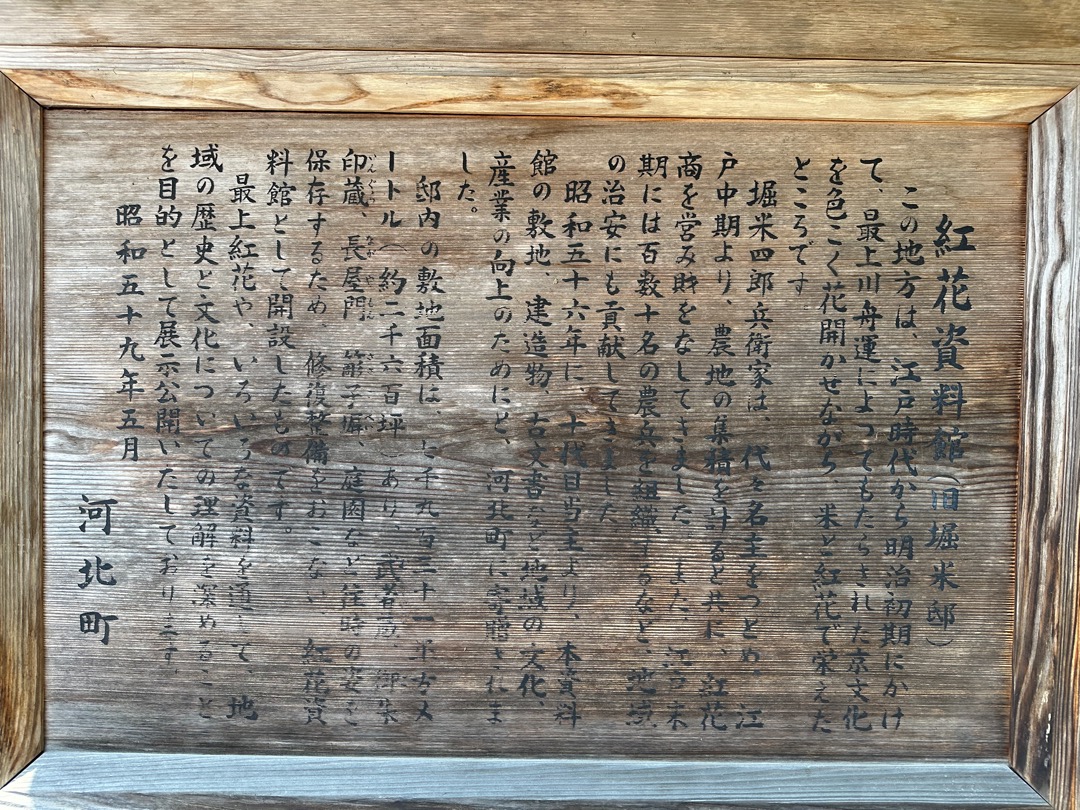 紅花資料館(旧堀米邸)
この地方は、江戸時代から明治初期にかけ
て、最上川舟運によってもたらされた京文化
を色こく花開かせながら、米と紅花で栄えた
ところです
堀米四郎兵衛家は、代々名主をつとめ、江
戸中期より、農地の集積を計ると共に、紅花
商を営み財をなしてきました。また、江戸末
期には百数十名の農兵を組織するなど、地域
の治安にも貢献してきました
昭和五十六年に、十代目当主より、本資料
館の敷地、建造物、古文書など地域の文化、
産業の向上のためにと、河北町に寄贈されま
した。
邸内の敷地面積は、七千九百三十一平方メ
ートル(約二千六百坪)あり、武者蔵、御朱
印蔵、長屋門、簓子塀、庭園など往時の姿を
保存するため、修復整備をおこない、紅花資
料館として開設したものです。
最上紅花や、いろいろな資料を通して、地
域の歴史と文化についての理解を深めること
を目的として展示公開いたしております。
昭和五十九年五月
河北町